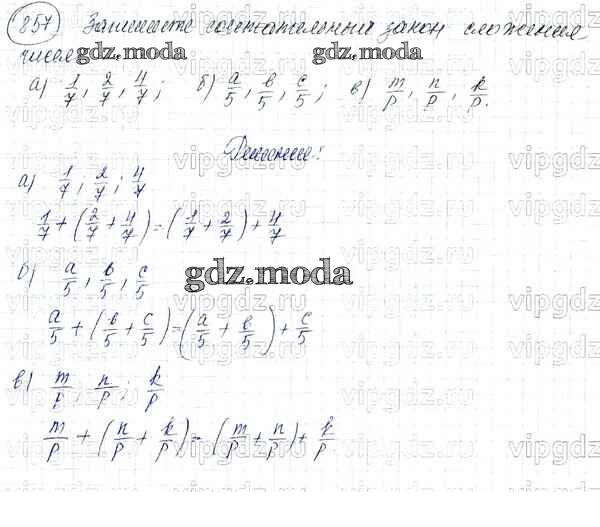 857) Запишите сочетательный закон сложения
чисел
gdz.moda gdz.moda
а) 1/7, 2/7, 4/7; б) a/5, b/5, c/5; в) m/p, n/p, k/p.
Решение:
а) 1/7, 2/7; 4/7
1/7 + (2/7 + 4/7) = (1/7 + 2/7) + 4/7
б) a/5, b/5, c/5
gdz.moda
a/5 + (b/5 + c/5) = (a/5 + b/5) + c/5
в) m/p, n/p; k/p
m/p + (n/p + k/p) = (m/p + n/p) + k/p
vipgdz.ru